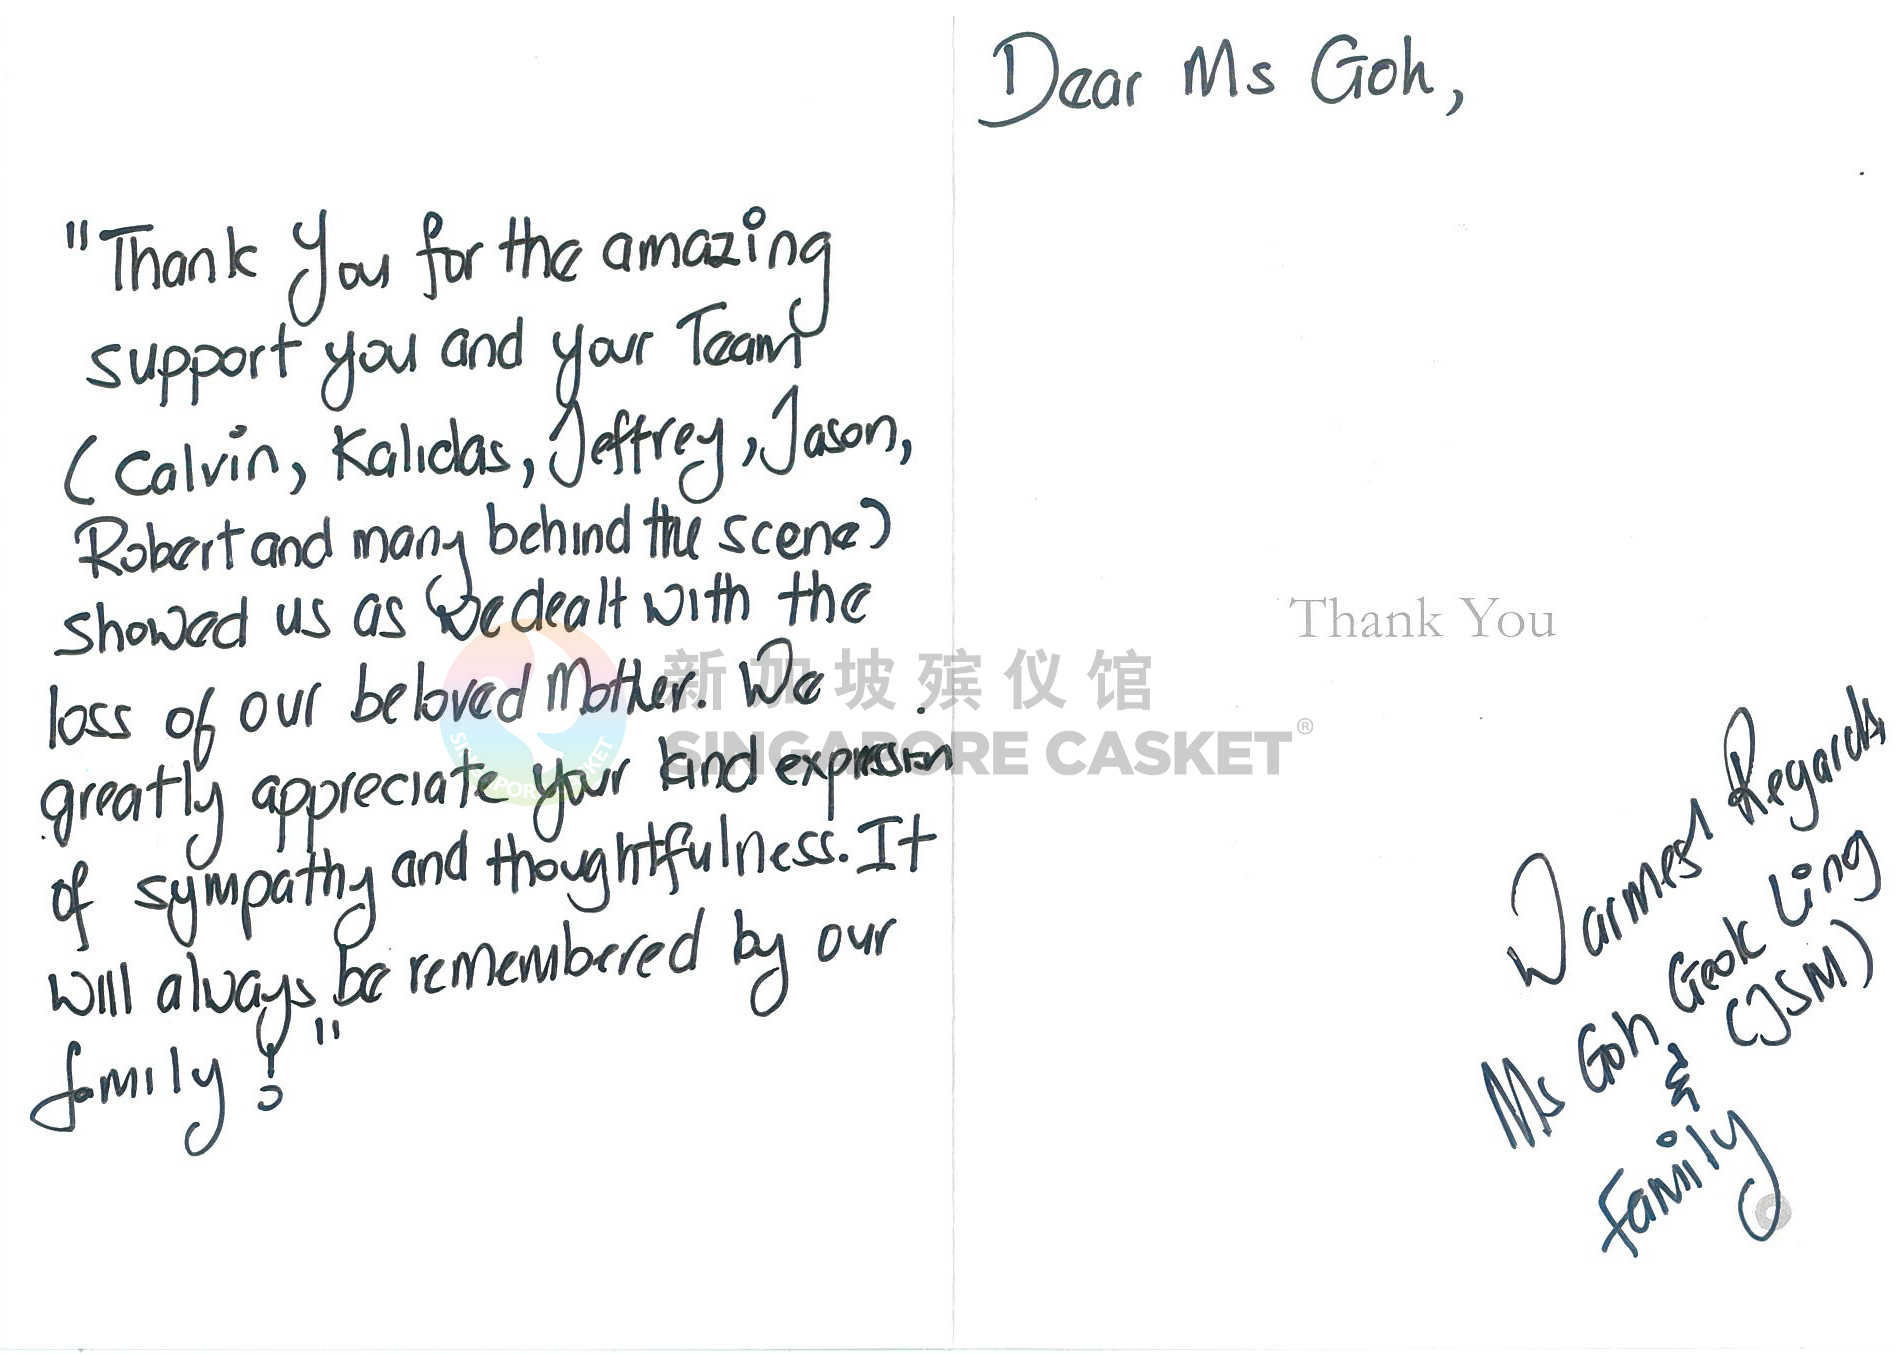 Dear Ms Goh,
"Thank You for the amazing
support you and your Team
(Calvin, Kalidas, Jeffrey, Jason,
Robert and many behind the scene)
showed us as We dealt with the
loss of our beloved Mother. We
greatly appreciate your kind expression
of sympathy and thoughtfulness. It
will always be remembered by our
family!"
Thank You
Warmest Regards,
Ms Goh Geok Ling
(JSM)
&
Family
新加坡殡仪馆
SINGAPORE CASKET®
SINGAPORE CASKET